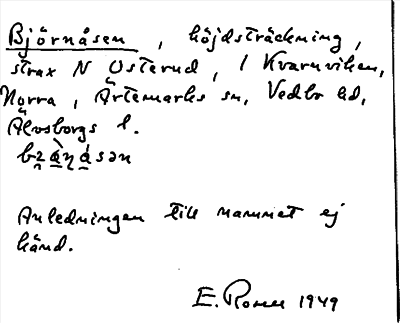 Björnåsen, höjdsträckning,
strax N Österud, / Kvarnviken,
Norra, Ärtemarks sn, Vedbo hd,
Älvsborgs l.
Anledningen till namnet ej
känd.
E. Rosell 1949